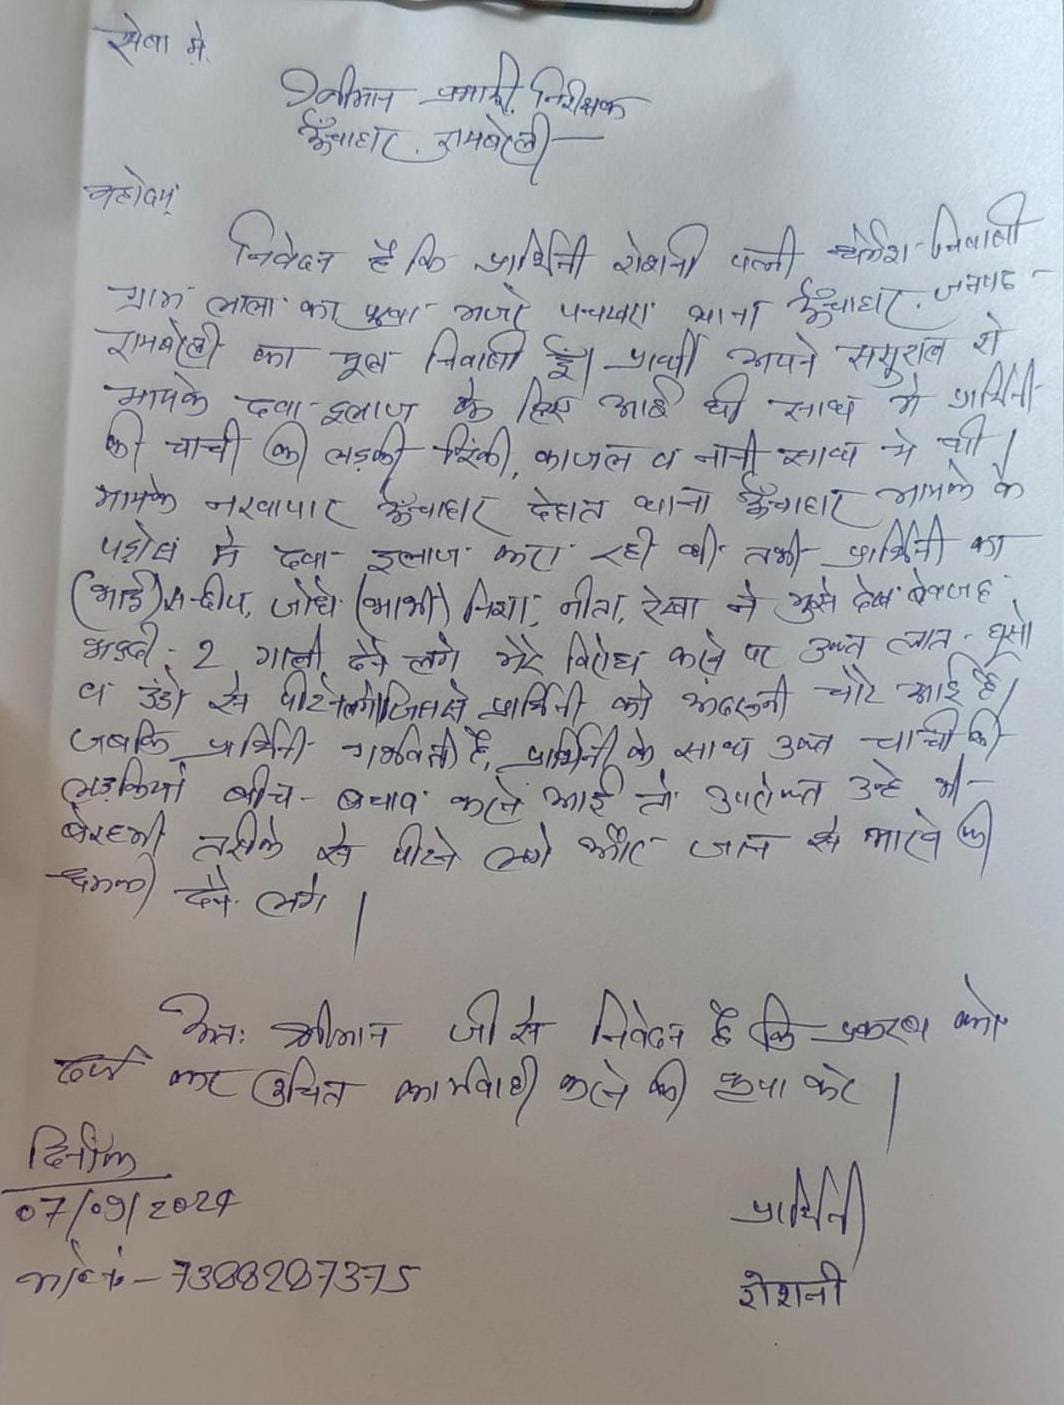 सेवा में,
श्रीमान प्रभारी निरीक्षक
ऊँचाहार, रायबरेली
महोदय,
निवेदन है कि प्रार्थिनी रोशनी पत्नी निवासी
ग्राम लाला का पुरवा मजरे पचखरा थाना ऊँचाहार, जनपद
रायबरेली का मूल निवासी हूँ। प्रार्थी अपने ससुराल से
मायके दवा इलाज के लिए आई थी साथ में प्रार्थिनी
की चाची की लड़की रिंकी, काजल व नानी साथ मे थी।
मायके ऊँचाहार देहात थाना ऊँचाहार मायके के
पड़ोस में दवा इलाज करा रही थी तभी प्रार्थिनी का
(भाई) सन्दीप, (भाभी) निशा, नीता, रेखा ने मुझे देख बेवजह
भद्दी-2 गाली देने लगे मेरे विरोध करने पर उक्त लात-घूसो
व डंडो से पीटने लगे। जिससे प्रार्थिनी को अंदरूनी चोटे आई है।
जबकि प्रार्थिनी गर्भवती है, प्रार्थिनी के साथ उक्त चाची की
लड़कियाँ बीच-बचाव करने आई तो उपरोक्त उन्हे भी
बेरहमी तरीके से पीटने लगे और जान से मारने की
धमकी देने लगे।
अतः श्रीमान जी से निवेदन है कि प्रकरण को
दर्ज कर उचित कार्यवाही करने की कृपा करे।
दिनाँक
07/09/2024
प्रार्थिनी
मो0नं0-7388287375
रोशनी